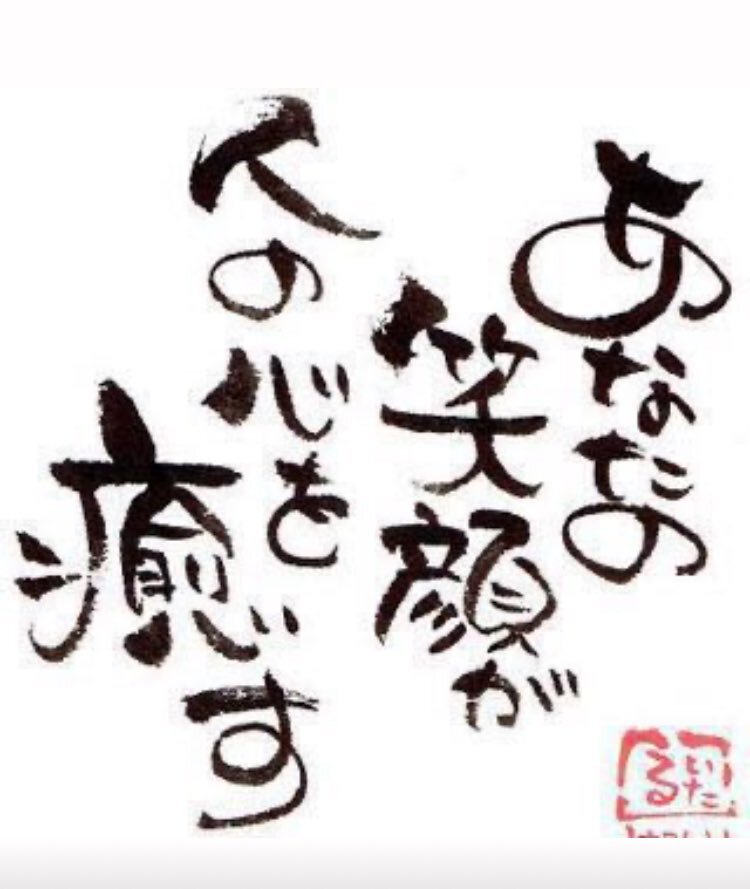 あなたの
笑顔が
人の心を
癒す
いたる